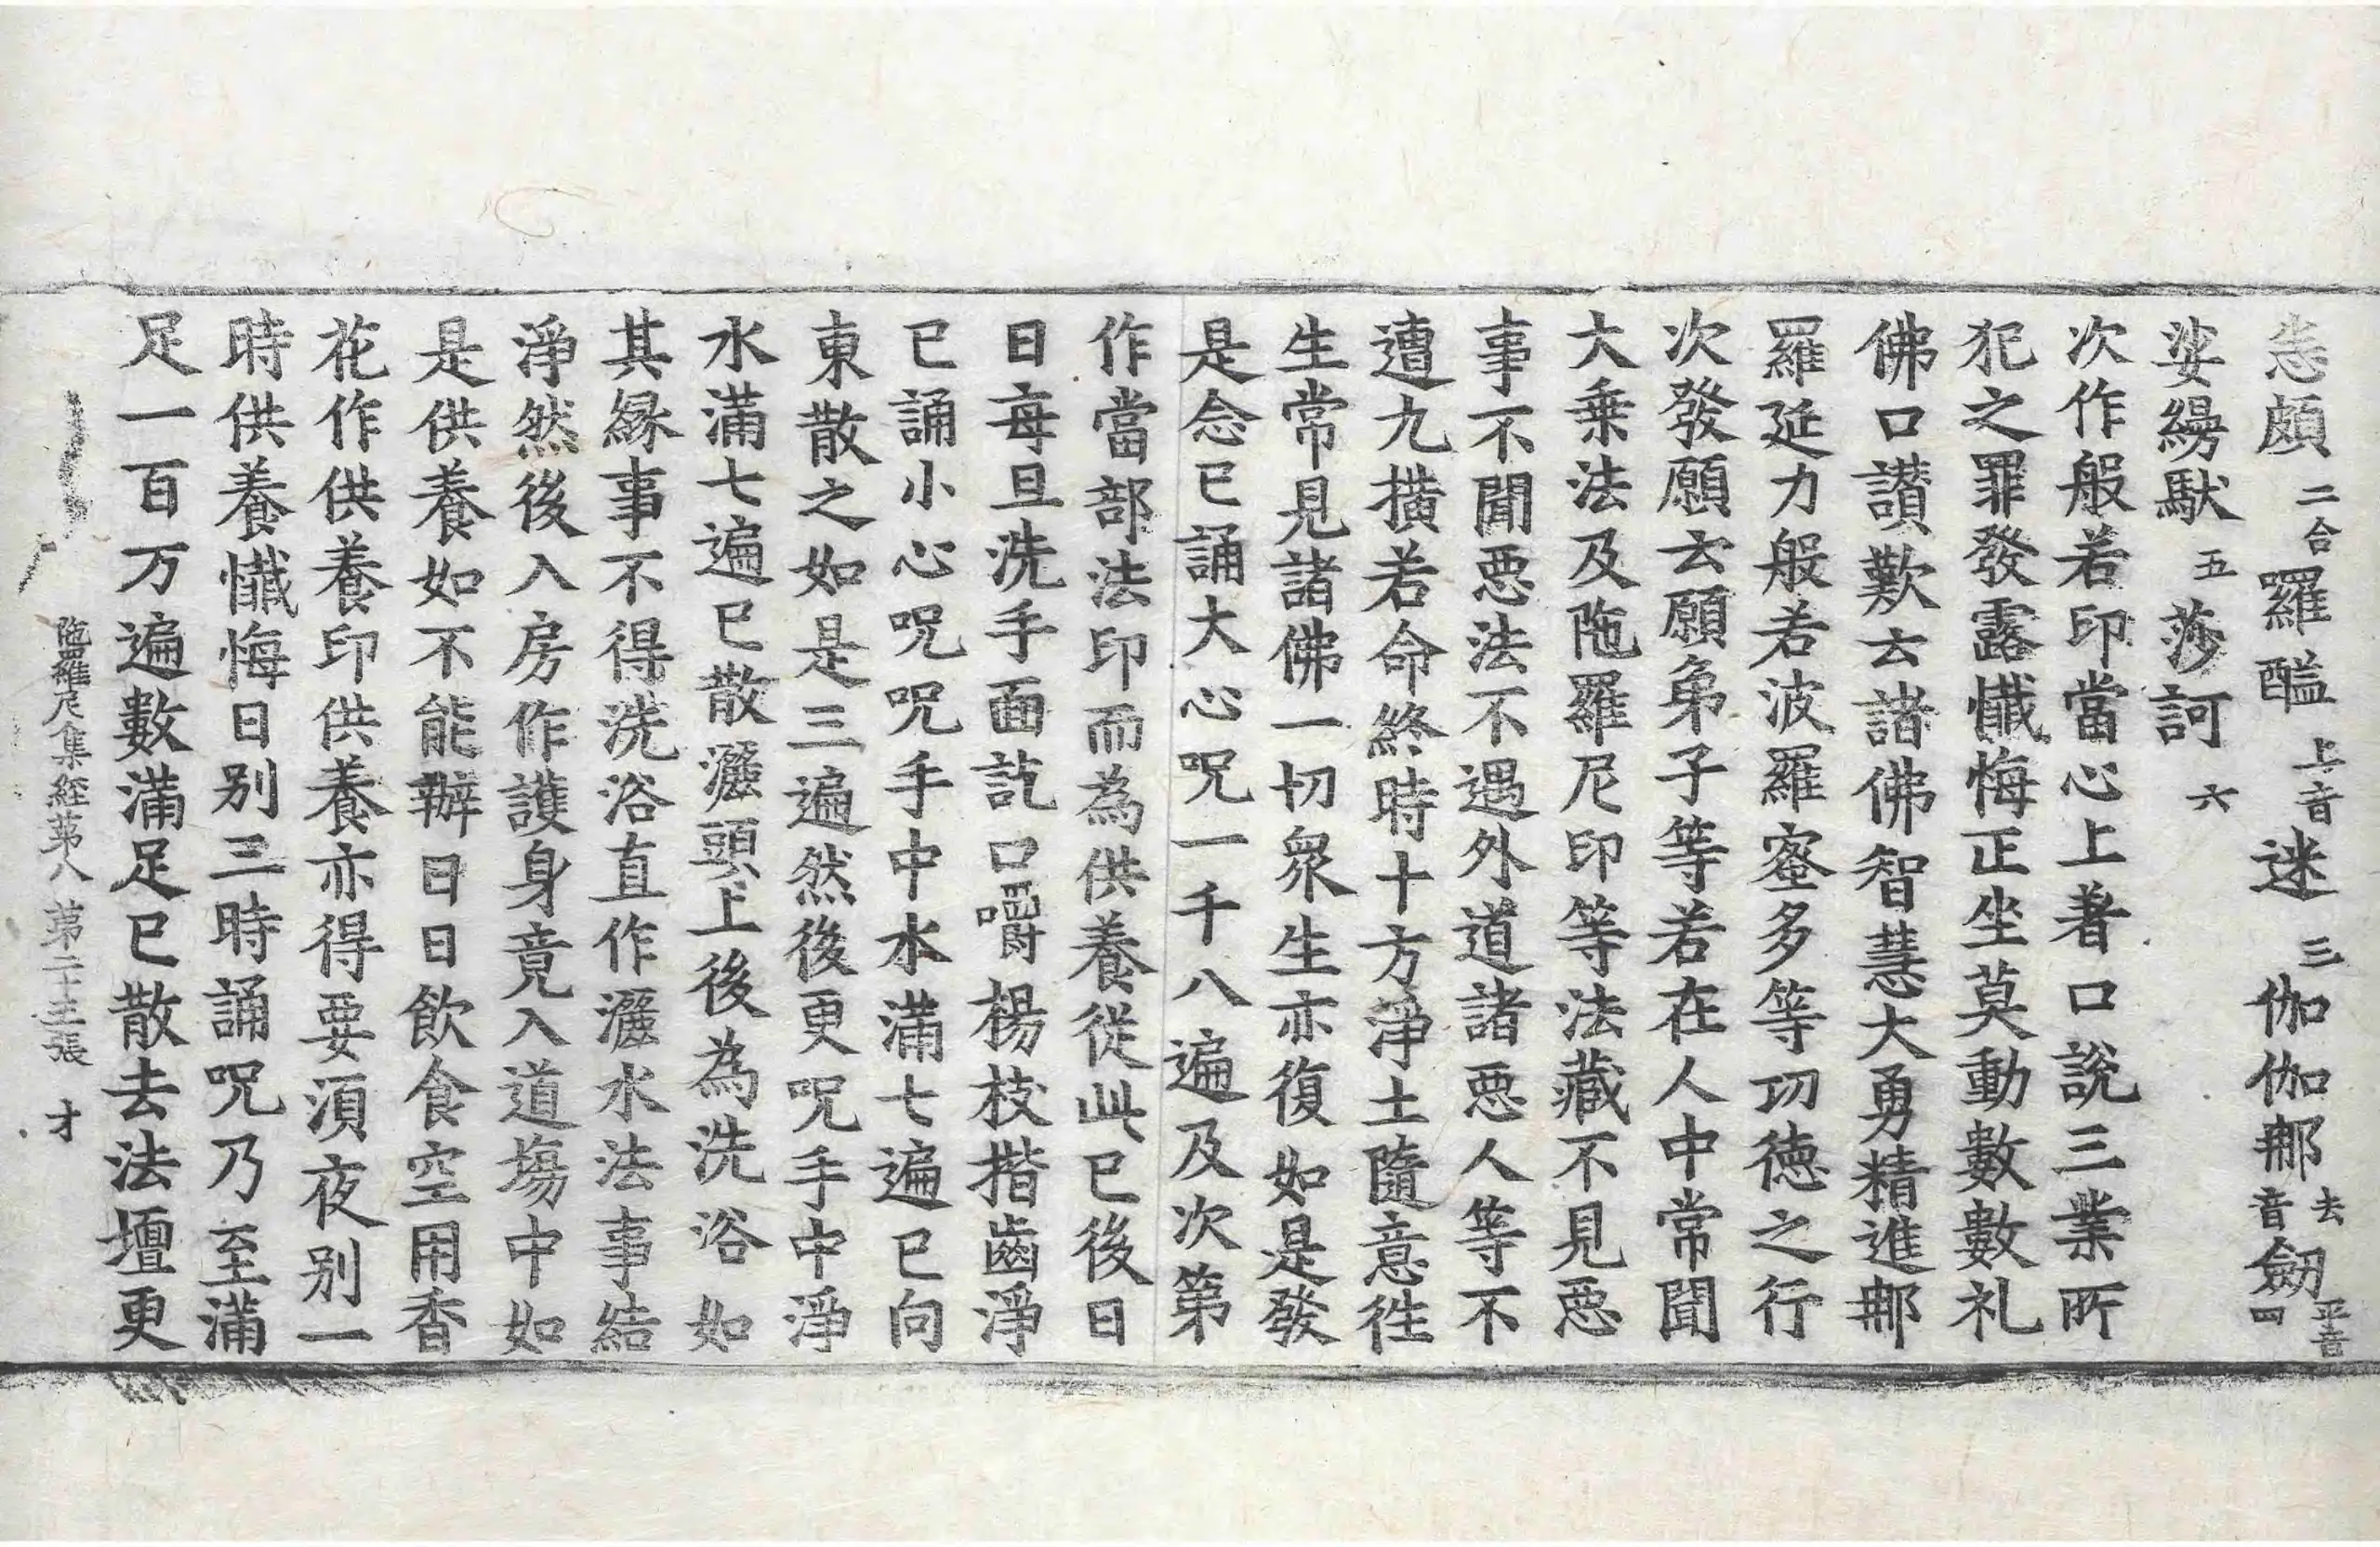 恙頗二合羅醯上音迷三伽伽那去音劒平音四
娑縵馱五莎訶六
次作般若印當心上著口說三業所
犯之罪發露懺悔正坐莫動數數礼
佛口讃歎云諸佛智慧大勇精進那
羅延力般若波羅蜜多等功德之行
次發願云願弟子等若在人中常聞
大乗法及陁羅尼印等法藏不見惡
事不聞惡法不遇外道諸惡人等不
遭九撗若命終時十方淨土隨意徃
生常見諸佛一切眾生亦復如是發
是念已誦大心呪一千八遍及次第
作當部法印而為供養從此已後日
日每旦洗手面訖口嚼楊枝揩齒淨
已誦小心呪呪手中水滿七遍已向
東散之如是三遍然後更呪手中淨
水滿七遍已散灑頭上後為洗浴如
其緣事不得洗浴直作灑水法事結
淨然後入房作護身竟入道場中如
是供養如不能辦日日飲食空用香
花作供養印供養亦得要湏夜別一
時供養懺悔日別三時誦呪乃至滿
足一百万遍數滿足已散去法壇更
陁羅尼集經第八 第二十三張 才